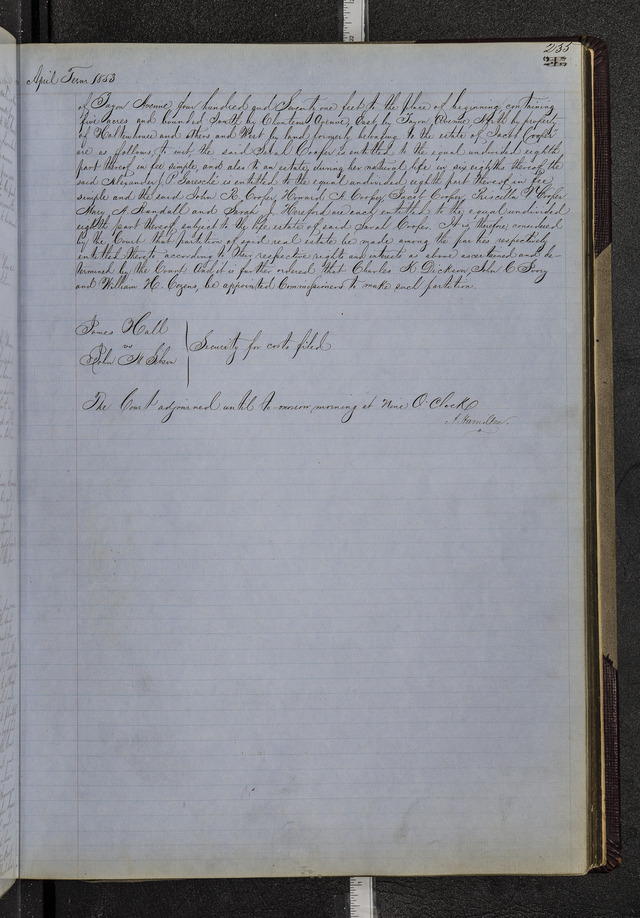 235
April Term 1853
of Tayon Avenue four hundred and twenty one feet to the place of beginning containing
five acres and bounded South by Chouteau Avenue, East by Tayon Avenue North by property
of and others and West by land formerly belonging to the estate of Jacob Cooper
are as follows, to wit, the said Sarah Cooper is entitled to the equal undivided eighth
part thereof in fee simple, and also to an estate during her natural life in six eighths thereof the
said Alexander J. P. Garesché is entitled to the equal undivided eighth part thereof in fee
simple and the said John R. Cooper, Howard A. Cooper, Jacob Cooper Priscilla Cooper
Mary A. Randall and Sarah J. Hereford are each entitled to the equal undivided
eighth part thereof subject to the life estate of said Sarah Cooper. It is therefore considered
by the Court that partition of said real estate be made among the parties respectively
entitled thereto according to their respective rights and interests as above ascertained and de-
termined by the Court And it is further ordered that Charles K. Dickson, John C. Ivory
and William H. Cozens, be appointed Commissioners to make such partition.
James Hall
vs
John
Security for costs filed
The Court adjourned until to-morrow morning at Nine O'Clock
A. Hamilton.